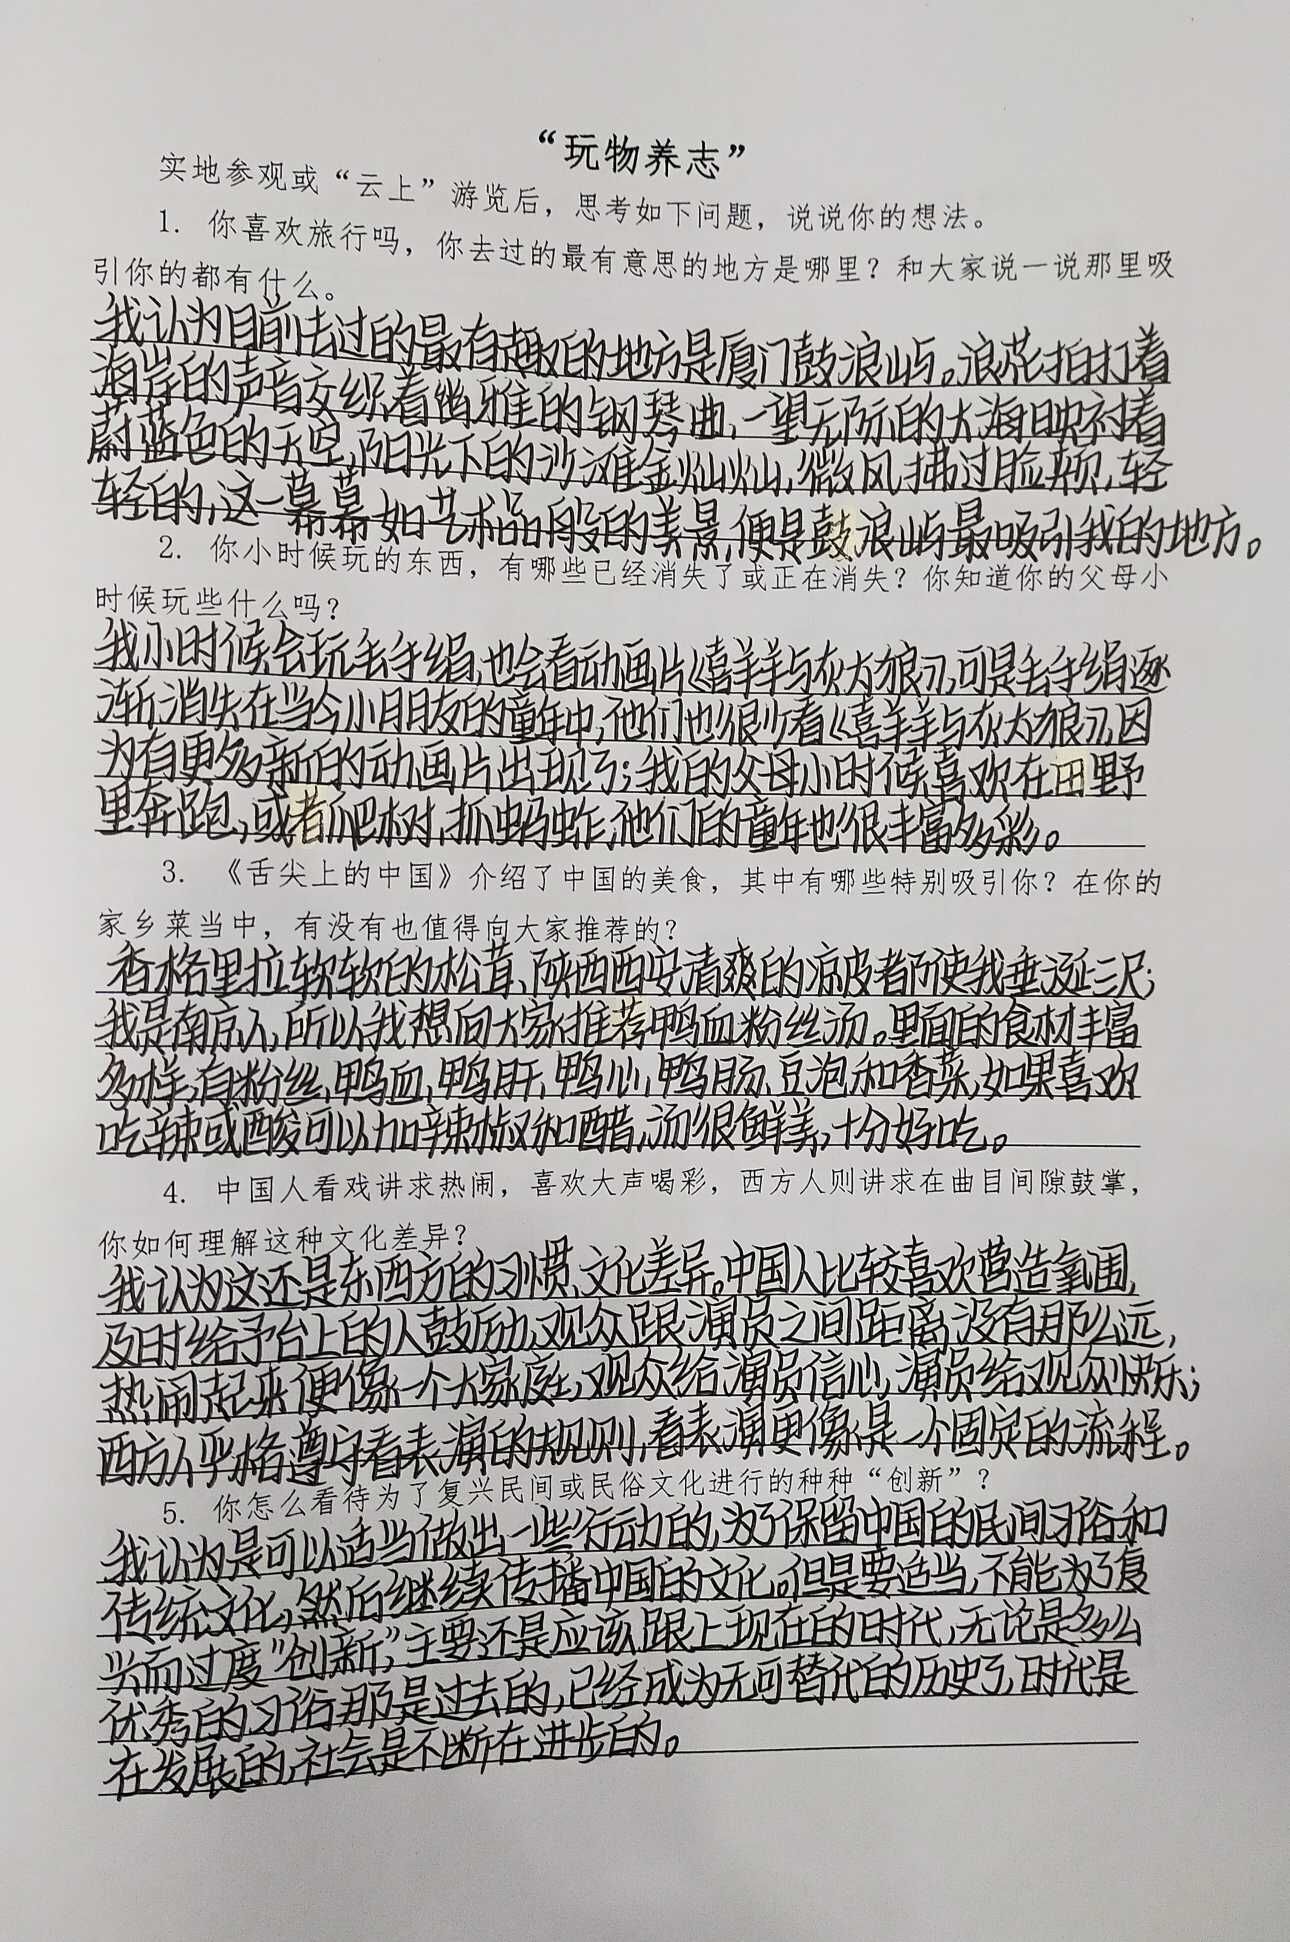 “玩物养志”
实地参观或“云上”游览后，思考如下问题，说说你的想法。
1. 你喜欢旅行吗，你去过的最有意思的地方是哪里？和大家说一说那里吸
引你的都有什么。
我认为目前去过的最有趣的地方是厦门鼓浪屿。浪花拍打着
海岸的声音交织着幽雅的钢琴曲，一望无际的大海映衬着
蔚蓝色的天空，阳光下的沙滩金灿灿，微风拂过脸颊，轻
轻的，这一幕幕如艺术品般的美景，便是鼓浪屿最吸引我的地方。
2. 你小时候玩的东西，有哪些已经消失了或正在消失？你知道你的父母小
时候玩些什么吗？
我小时候会玩丢手绢，也会看动画片《喜羊羊与灰太狼》，可是丢手绢逐
渐消失在当今小朋友的童年中，他们也很少看《喜羊羊与灰太狼》，因
为有更多新的动画片出现了；我的父母小时候喜欢在田野
里奔跑，或者爬树，抓蚂蚱，他们的童年也很丰富多彩。
3. 《舌尖上的中国》介绍了中国的美食，其中有哪些特别吸引你？在你的
家乡菜当中，有没有也值得向大家推荐的？
香格里拉软软的松茸、陕西西安清爽的凉皮都使我垂涎三尺；
我是南京人，所以我想向大家推荐鸭血粉丝汤。里面的食材丰富
多样，有粉丝，鸭血，鸭肝，鸭心，鸭肠、豆泡和香菜，如果喜欢
吃辣或酸可以加辣椒和醋，汤很鲜美，十分好吃。
4. 中国人看戏讲求热闹，喜欢大声喝彩，西方人则讲求在曲目间隙鼓掌，
你如何理解这种文化差异？
我认为这还是东西方的习惯、文化差异。中国人比较喜欢营造氛围，
及时给予台上的人鼓励，观众跟演员之间距离没有那么远，
热闹起来便像一个大家庭，观众给演员信心，演员给观众快乐；
西方人严格遵守看表演的规则，看表演更像是一个固定的流程。
5. 你怎么看待为了复兴民间或民俗文化进行的种种“创新”？
我认为是可以适当做出一些行动的，为了保留中国的民间习俗和
传统文化，然后继续传播中国的文化。但是要适当，不能为了复
兴而过度“创新”，主要还是应该跟上现在的时代，无论是多么
优秀的习俗那是过去的，已经成为无可替代的历史了，时代是
在发展的，社会是不断在进步的。